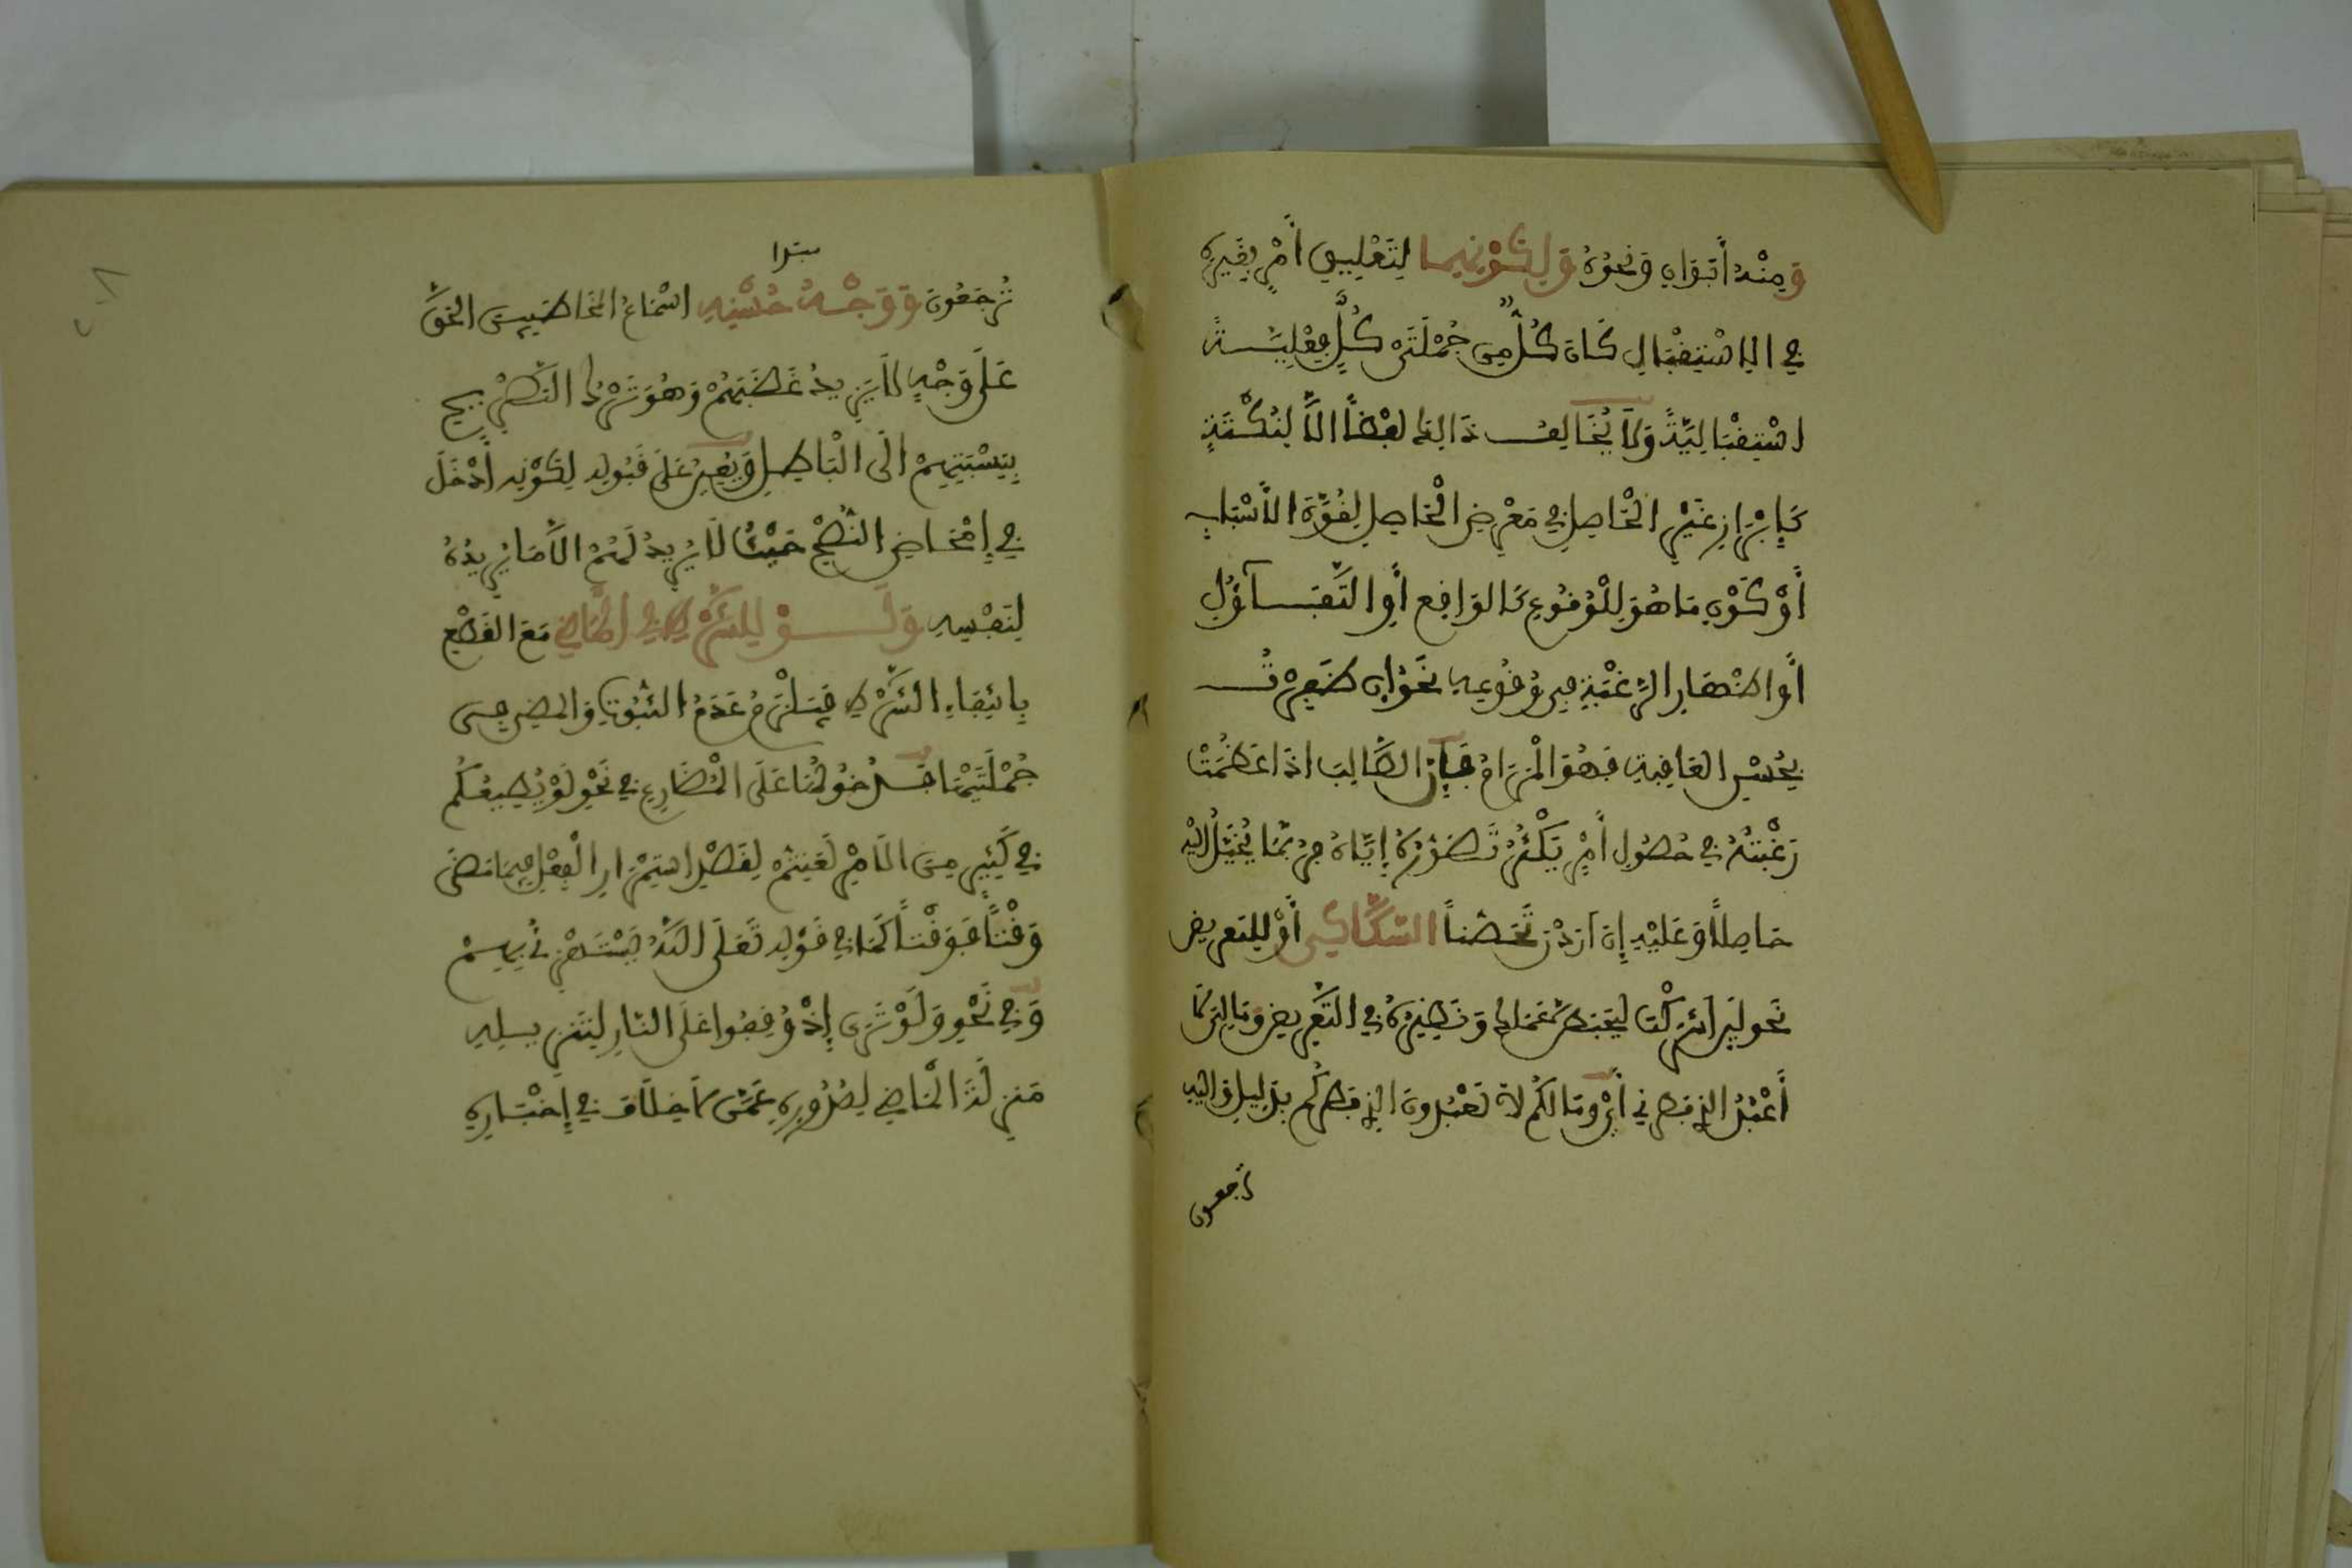 وَمِنْهُ أَبَوَانِ وَنَحْوُهُ وَلِكَوْنِهِمَا لِتَعْلِيقِ أَمْرٍ بِغَيْرِهِ
فِي الِاسْتِقْبَالِ كَانَ كُلٌّ مِنْ جُمْلَتَيْ كُلٍّ فِعْلِيَّةً
اسْتِقْبَالِيَّةً وَلَا يُخَالِفُ ذَالِكَ لَفْظاً إِلَّا لِنُكْتَةٍ
كَإِبْرَازِ غَيْرِ الْحَاصِلِ فِي مَعْرِضِ الْحَاصِلِ لِقُوَّةِ الْأَسْبَابِ
أَوْ كَوْنِ مَا هُوَ لِلْوُقُوعِ كَالْوَاقِعِ أَوِ التَّفَاؤُلِ
أَوِ اظْهَارِ الرَّغْبَةِ فِي وُقُوعِهِ نَحْوُ إِن ظَفِرْتُ
بِحُسْنِ الْعَاقِبَةِ فَهُوَ الْمَرَامُ فَإِنَّ الطَّالِبَ إِذَا عَظُمَتْ
رَغْبَتُهُ فِي حُصُولِ أَمْرٍ يَكْثُرُ تَصَوُّرُهُ إِيَّاهُ فَرُبَّمَا يُخَيَّلُ إِلَيْهِ
حَاصِلاً وَعَلَيْهِ إِنَ ارَدْنَ تَحَصُّناً السَّكَّاكِي أَوْ لِلتَعْرِيضِ
نَحْو لَئِنَ اشْرَكْتَ لَيَحْبَطَنَّ عَمَلُكَ وَنَظِيرُهُ فِي التَّعْرِيضِ وَمَا لِيَ لَا
أَعْبُدُ الذِي فَطَرَنِي أَيْ وَمَا لَكُمْ لَا تَعْبُدُونَ الذِي فَطَرَكُمْ بِدَلِيلِ وَإِلَيْهِ
تُرْجَعُونَ
مبتدا
تُرْجَعُونَ وَوَجْهُ حُسْنِهِ اسْمَاعُ الْمُخَاطَبِينَ الْحَقَّ
عَلَى وَجْهٍ لَا يَزِيدُ غَضَبَهُمْ وَهُوَ تَرْكُ التَّصْرِيحِ
بِنِسْبَتِهِمْ إِلَى الْبَاطِلِ وَيُعِينُ عَلَى قَبُولِهِ لِكَوْنِهِ أَدْخَلَ
فِي إِمْحَاضِ النُّصْحِ حَيْثُ لَا يُرِيدُ لَهُمْ إِلَّا مَا يُرِيدُهُ
لِنَفْسِهِ وَلَوْ لِلشَّرْطِ فِي الْمَاضِي مَعَ الْقَطْعِ
بِانْتِفَاءِ الشَّرْطِ فَيَلْزَمُ عَدَمُ الثُّبُوتِ وَالْمُضِيِّ فِي
جُمْلَتَيْهَا فَدُخُولُهَا عَلَى الْمُضَارِعِ فِي نَحْوِ لَوْ يُطِيعُكُمْ
فِي كَثِيرٍ مِنَ الْأَمْرِ لَعَنِتُّمْ لِقَصْدِ اسْتِمْرَارِ الْفِعْلِ فِيمَا مَضَى
وَقْتاً فَوَقْتاً كَمَا فِي قَوْلِهِ تَعَلَى اللَّهُ يَسْتَهْزِئُ بِهِمْ
وَفِي نَحْوِ وَلَوْ تَرَى إِذْ وُقِفُوا عَلَى النَّارِ لِتَنْزِيلِهِ
مَنْزِلَةَ الْمَاضِي لِصُدُورِهِ عَمَّن لَا خِلَافَ فِي إِخْبَارِهِ